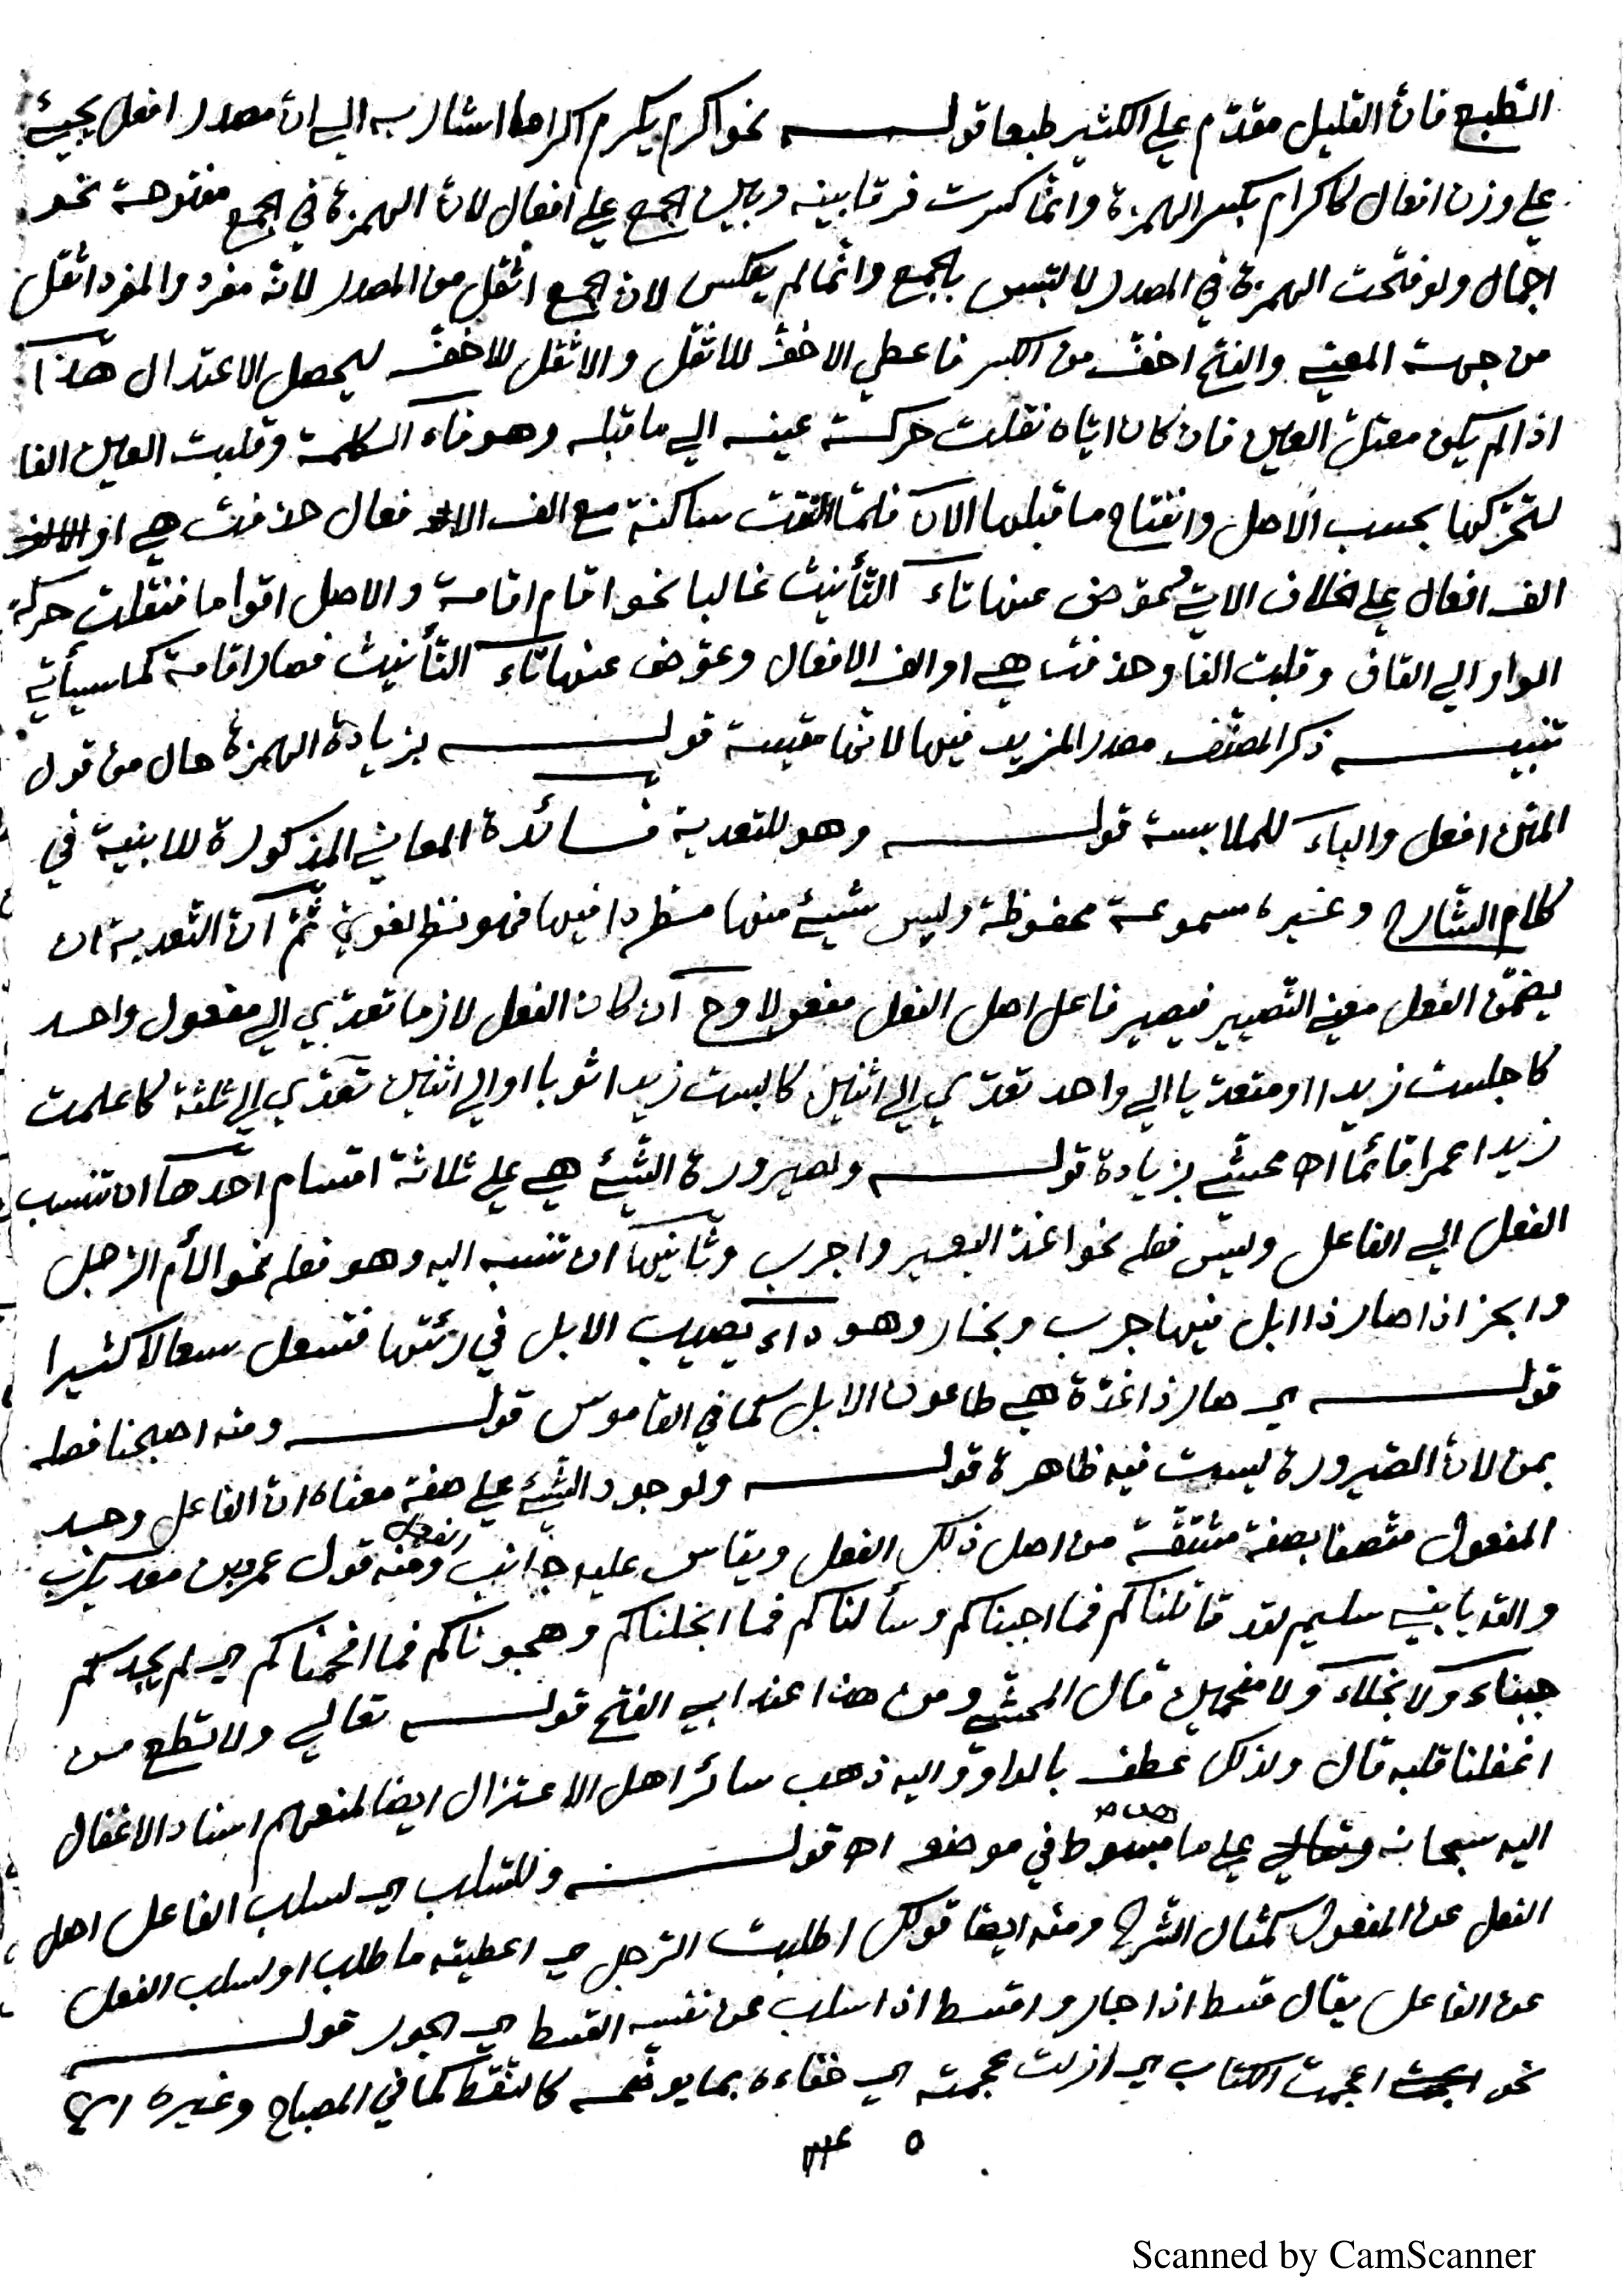 الطبع فان القليل مقدّم علي الكثير طبعا قوله نحو اكرم يكرم اكراما اشار به الي انّ مصدر افعل يجيئ
علي وزن افعال كاكرام بكسر الهمزة وانّما كسرت فرقا بينه وبين الجمع علي افعال لانّ الهمزة في الجمع مفتوحة نحو
اجمال ولو فتحت الهمزة في المصدر لالتبس بالجمع وانّما لم يعكس لان الجمع اثقل من المصدر لانّه مفرد والمفرد اثقل
من جهة المعني والفتح اخفّ من الكسر فاعطي الاخفّ للاثقل والاثقل للاخفّ ليحصل الاعتدال هذا
اذا لم يكن معتلّ العين فان كان ايّاه نقلت حركة عينه الي ما قبله وهو فاء الكلمة وقلبت العين الفا
لتحرّكها بحسب الاصل وانفتاح ما قبلها الآن فلمّا التقت ساكنة مع الف الافعال حذفت هي او الالف
الف افعال علي الخلاف الاتي عوّض عنها تاء التأنيث غالبا نحو اقام اقامة والاصل اقواما فنقلت حركة
الواو الي القاف وقلبت الفا وحذفت هي او الف الافعال وعوّض عنها تاء التأنيث فصار اقامة كما سيأتي
تنبيه ذكر المصنّف مصدر المزيد فيها لانّها مقيسة قوله بزيادة الهمزة حال من قول
المتن افعل والباء للملابسة قوله وهو للتعدية فائدة المعاني المذكورة للابنية في
كلام الشارح وغيره مسموعة محفوظة وليس شيئ منها مطردا فيها فهو نظر لغويّ ثمّ انّ التعدية ان
يضمّن الفعل معني التّصيير فيصير فاعل اصل الفعل مفعولا وح ان كان الفعل لازما تعدّي الي مفعول واحد
كاجلست زيدا او متعدّيا الي واحد تعدّي الي اثنين كالبست زيدا ثوبا او الي اثنين تعدّي الي ثلثة كاعلمت
زيدا عمرا قائما اه محشّي بزيادة قوله ولصيرورة الشّيئ هي علي ثلاثة اقسام احدها ان تنسب
الفعل الي الفاعل وليس فعله نحو اغدّ البعير واجرب وثانيها ان تنسبه اليه وهو فعله نحو الأم الرّجل
وابحز اذا صار ذا ابل فيها جرب وبخار وهو داء يصيب الابل في رئتها فتسعل سعالا كثيرا
قوله اي صار ذا غدّة هي طاعون الابل كما في القاموس قوله ومنه اصبحنا فصله
بمن لانّ الصّيرورة ليست فيه ظاهرة قوله ولوجود الشّيئ علي صفة معناه انّ الفاعل وجد
المفعول متّصفا بصفة مشتقّة من اصل ذلك الفعل ويقاس عليه جانب ومنه قول عمرو بن معديكرب
والله يا بني سليم لقد قاتلناكم فما اجبناكم وسألناكم فما ابخلناكم وهجوناكم فما افحمناكم اي لم يجدكم
جبناء ولا بخلاء ولا مفحمين قال المحشّي ومن هذا عند ابي الفتح قوله تعالي ولا تطع من
اغفلنا قلبه قال ولذلك عطف بالواو واليه ذهب سائر اهل الاعتزال ايضا لمنعهم اسناد الاغفال
اليه سبحانه وتعالي علي ما مبسوط في موضعه اه قوله وللسّلب اي لسلب الفاعل اصل
الفعل عن المفعول كمثال الشرح ومنه ايضا قولك اطلبت الرّجل اي اعطيته ما طلب او لسلب الفعل
عن الفاعل يقال قسط اذا جار واقسط اذا سلب عن نفسه القسط اي الجور قوله
نحو اعجمت الكتاب اي ازلت عجمته اي خفاءه بما يوضّحه كالنّقط كما في المصباح وغيره
Scanned by CamScanner